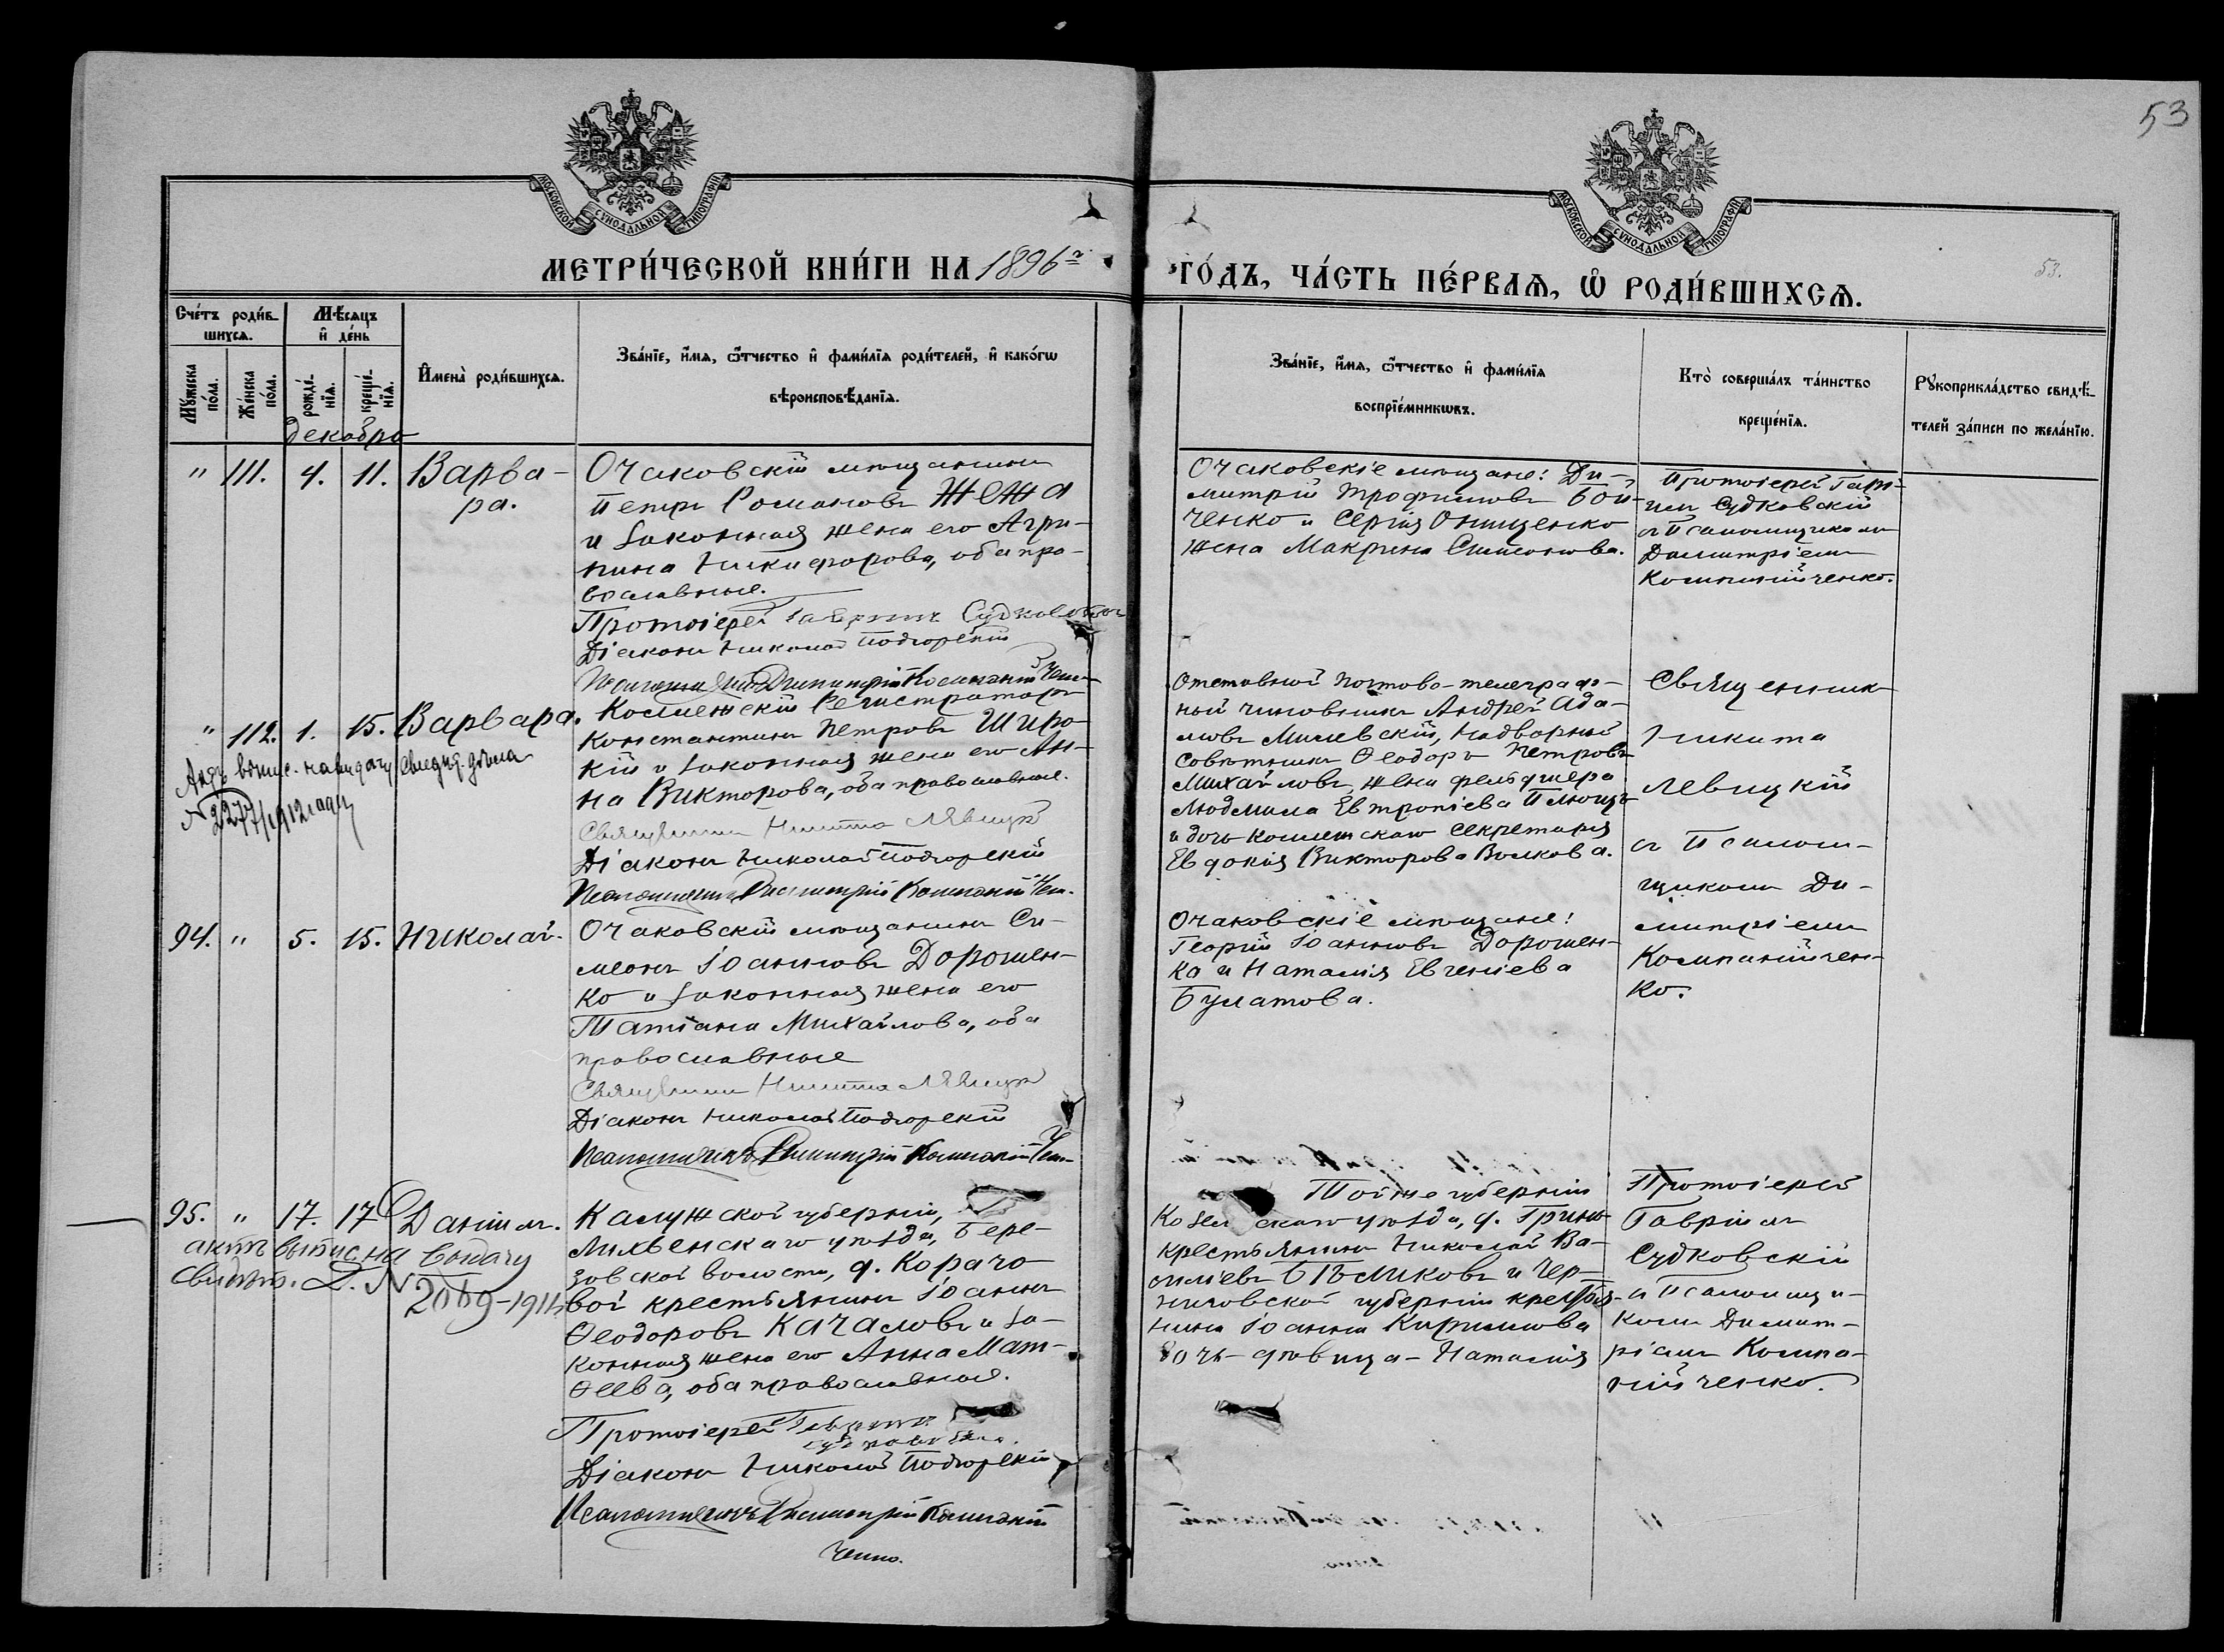 53
МОСКОВСКОЙ СѴНОДАЛЬНОЙ ТИПОГРАФІИ
МОСКОВСКОЙ СѴНОДАЛЬНОЙ ТИПОГРАФІИ
МЕТРИ́ЧЕСКОЙ КНИ́ГИ НА 1896 г
ГО́ДЪ, ЧА́СТЬ ПЕ́РВАѦ, Ѡ҆ РОДИ́ВШИХСѦ.
53.
Сче́тъ роди́в-
шихсѧ.
Мѣ́сѧцъ
и҆ де́нь
Мꙋ́жеска
по́ла.
Же́нска
по́ла.
рожде́-
нїѧ.
креще́-
нїѧ.
И҆мена̀ роди́вшихсѧ.
Зва́нїе, и҆́мѧ, ѻ҆́тчество и҆ фами́лїѧ роди́телей, и҆ како́гѡ
вѣроисповѣ́данїѧ.
Зва́нїе, и҆́мѧ, ѻ҆́тчество и҆ фами́лїѧ
воспрїе́мникѡвъ.
Кто̀ соверша́лъ та́инство
креще́нїѧ.
Рꙋкоприкла́дство свидѣ́-
телей за́писи по жела́нїю.
декабрь
" 111. 4. 11. Варва-
ра.
Очаковскій мѣщанинъ
Петръ Романовъ Жежа
и законная жена его Агри-
пина Никифорова, оба пра-
вославные.
Протоіерей Гавріилъ Судковскій
Діаконъ Николай Подгорскій
Псаломщикъ Димитрій Компанійчен-
Очаковскіе мѣщане: Ди-
митрій Трофимовъ Бой-
ченко и Сергія Онищенко
жена Макрина Симонова.
Протоіерей Гаврі-
илъ Судковскій
съ Псаломщикомъ
Димитріемъ
Компанійченко.
" 112. 1. 15. Варвара.
Актъ выпис. на выдачу свидѣт. дѣла
№ 2277/1912 года
Коллежскій Регистраторъ
Константинъ Петровъ Широ-
кій и законная жена его Ан-
на Викторова, оба православные.
Священникъ Никита Левицкій
Діаконъ Николай Подгорскій
Псаломщикъ Димитрій Компанійчен.
Отставной почтово-телеграф-
ный чиновникъ Андрей Ада-
мовъ Милевскій, Надворный
совѣтникъ Ѳеодоръ Петровъ
Михайловъ, жена фельдшера
Людмила Евтропіева
и дочь коллежскаго секретаря
Евдокія Викторова Волкова.
Священникъ
Никита
Левицкій
съ Псалом-
щикомъ Ди-
митріемъ
Компанійчен-
ко.
94. " 5. 15. Николай.
Очаковскій мѣщанинъ Си-
меонъ Іоанновъ Дорошен-
ко и законная жена его
Татіана Михайлова, оба
православные
Священникъ Никита Левицкій
Діаконъ Николай Подгорскій
Псаломщикъ Димитрій Компанійчен-
Очаковскіе мѣщане:
Георгій Іоанновъ Дорошен-
ко и Наталія Евгеніева
Булатова.
95. " 17. 17 Даніилъ.
актъ выпис. на выдачу
свидѣт. Д. № 2069-1911
Калужской губерніи,
Лихвенскаго уѣзда, Бере-
зовской волости, д. Карачо-
вой крестьянинъ Іоаннъ
Ѳеодоровъ Качаловъ и за-
конная жена его Анна Мат-
ѳеева, оба православные.
Протоіерей Гавріилъ
Судковскій.
Діаконъ Николай Подгорскій
Псаломщикъ Димитрій Компаній
ченко.
Той же губерніи
Козельскаго уѣзда, д.
крестьянинъ Николай Ва-
силіевъ Бѣликовъ и Чер-
ниговской губерніи крестья-
нина Іоанна Кириллова
дочь-дѣвица-Наталія
Протоіерей
Гавріилъ
Судковскій
съ Псаломщи-
комъ Димит-
ріемъ Компа-
нійченко.